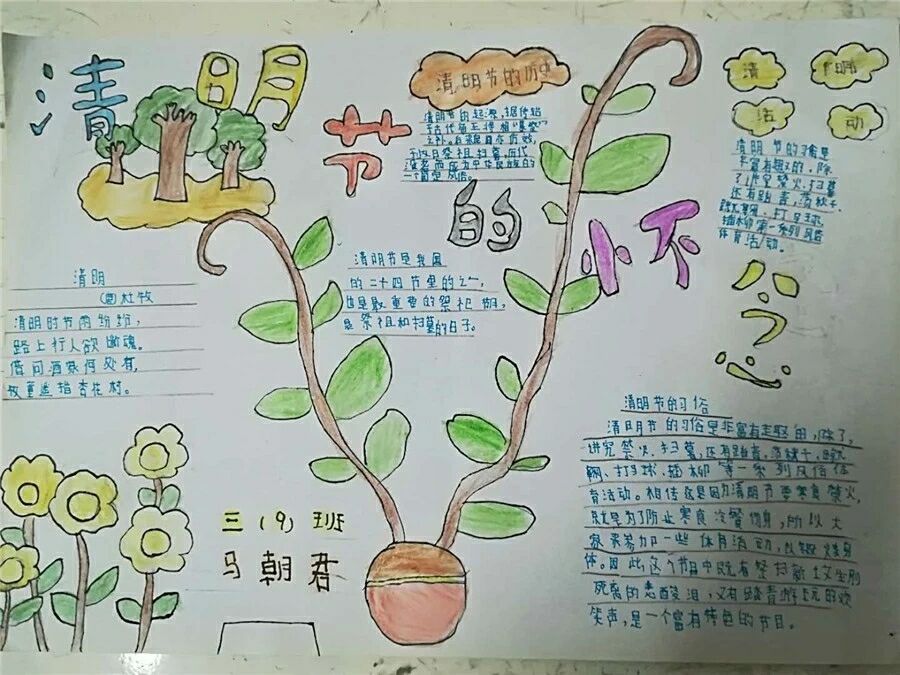 清明
节
的
小
不
清明节的历史
清明节的起源,据传始
于古代帝王将相"墓祭"
之礼,后来民间亦仿效,
于此日祭祖扫墓,历代
沿袭而成为中华民族的
一个固定风俗。
清明节
活动
清明节的习俗是
丰富有趣的,除
了讲究禁火、扫墓
还有踏青、荡秋千、
蹴鞠、打马球、
插柳等一系列风俗
体育活动。
清明
杜牧
清明时节雨纷纷,
路上行人欲断魂。
借问酒家何处有,
牧童遥指杏花村。
清明节是我国
的二十四节里的之一
也是最重要的祭祀
是祭祖和扫墓的日子。
清明节的习俗
清明节的习俗是丰富有趣的,除了,
讲究禁火、扫墓,还有踏青、荡秋千、蹴
鞠、打球、插柳等一系列风俗体
育活动。相传这是因为清明节要寒食禁火,
就是为了防止寒食冷餐伤身,所以大
家来参加一些体育活动,以锻炼身
体。因此,这个节日中既有祭扫新坟生别
死离的悲酸泪,又有踏青游玩的欢
笑声,是一个富有特色的节日。
三(9)班
马朝君